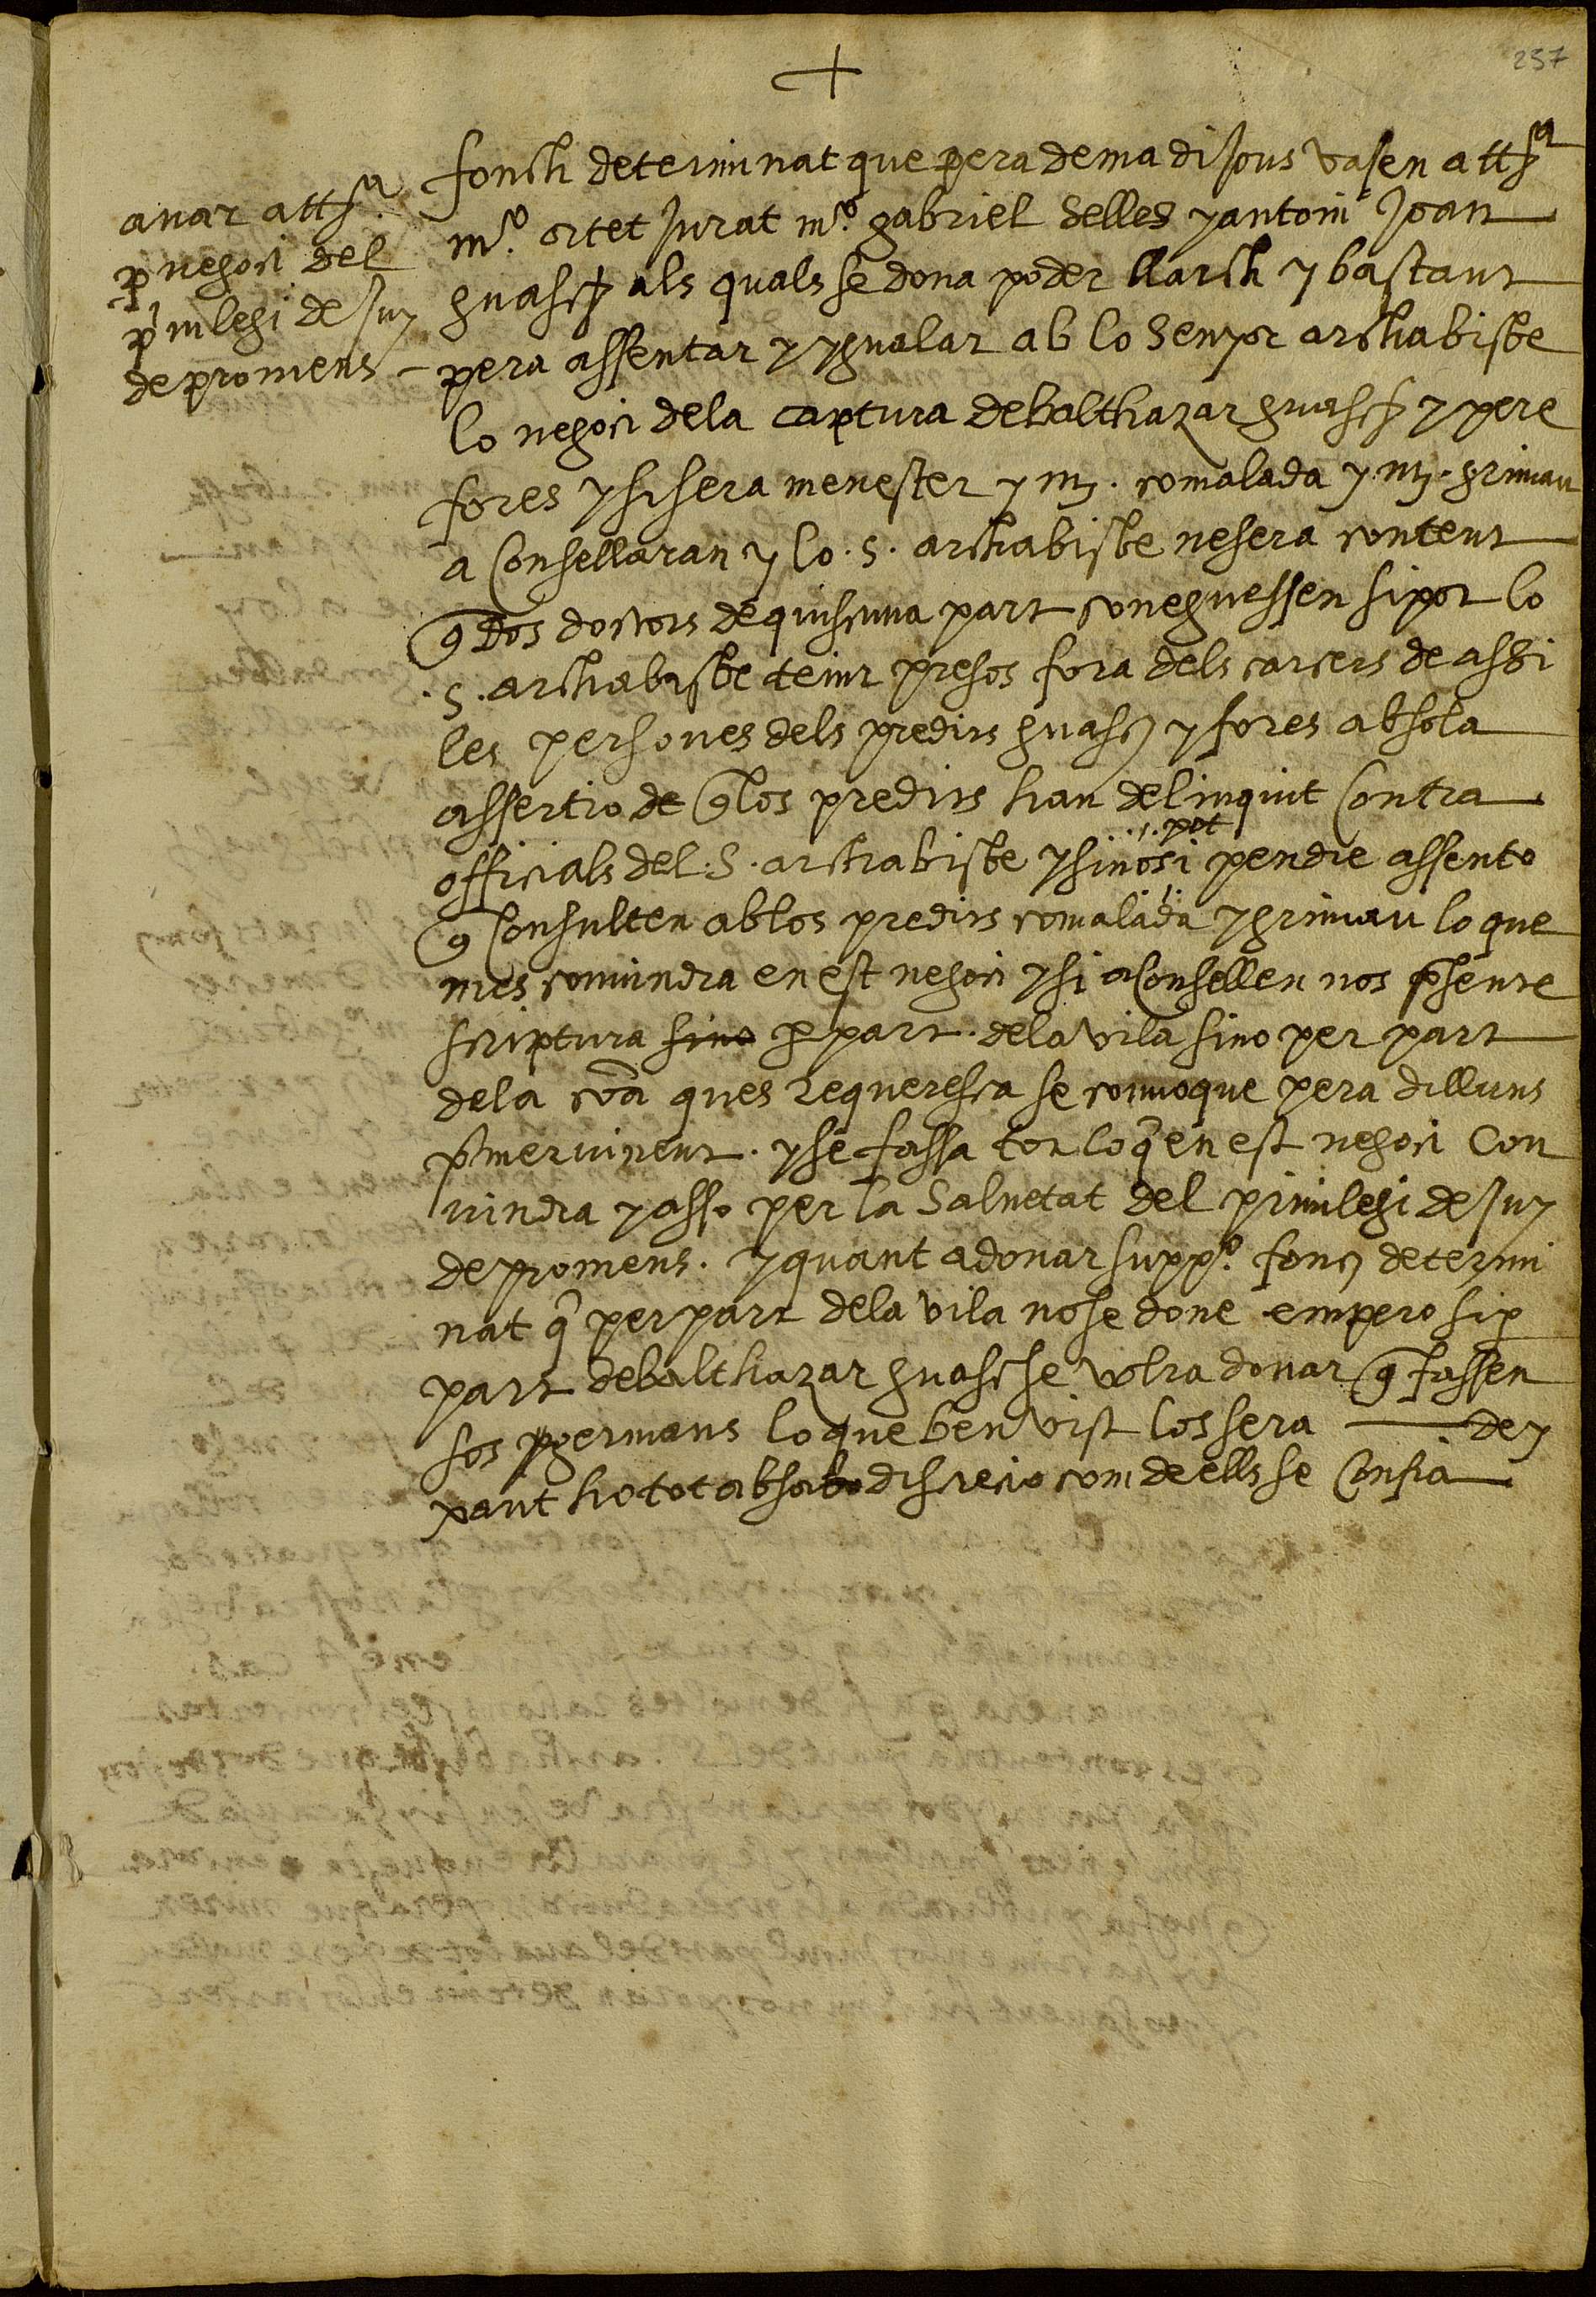 257
fonch determinat que pera dema dijous vasen a ttª
mº. ortet jurat mº. gabriel selles y antoni joan
guasch als quals se dona poder llarch y bastant
pera assentar y ygualar ab lo senyor archabisbe
lo negoci dela captura de balthazar guasch y pere
fores y si sera menester y mj. comalada y mj. grimau
a consellaran y lo .s. archabisbe ne sera content
q dos doctors de quiscuna part coneguessen si pot lo
.s. archabisbe tenir presos fora dels carcers de assi
les persones dels predits guasch y fores ab sola
assertio de q los predits han delinquit contra
officials del .s. archabisbe y si nosi pot pendre assento
q consulten ab los predits comalada y grimau lo que
mes convindra en est negoci y si aconsellen nos psente
scriptura sino p part dela vila sino per part
dela coa ques requeresca se convoque pera dilluns
pmer vinent. y se fassa tot lo q en est negoci con
vindra y asso per la salvetat del privilegi de juy
de promens. y quant a donar suppº. fonch determi
nat q per part dela vila no se done empero si p
part de balthazar guasch se volra donar q fassen
sos germans lo que ben vist los sera — dey
xant ho tot a bsa discrecio com de ells se confia
anar a ttª.
p negoci del
privilegi de juy
de promens –